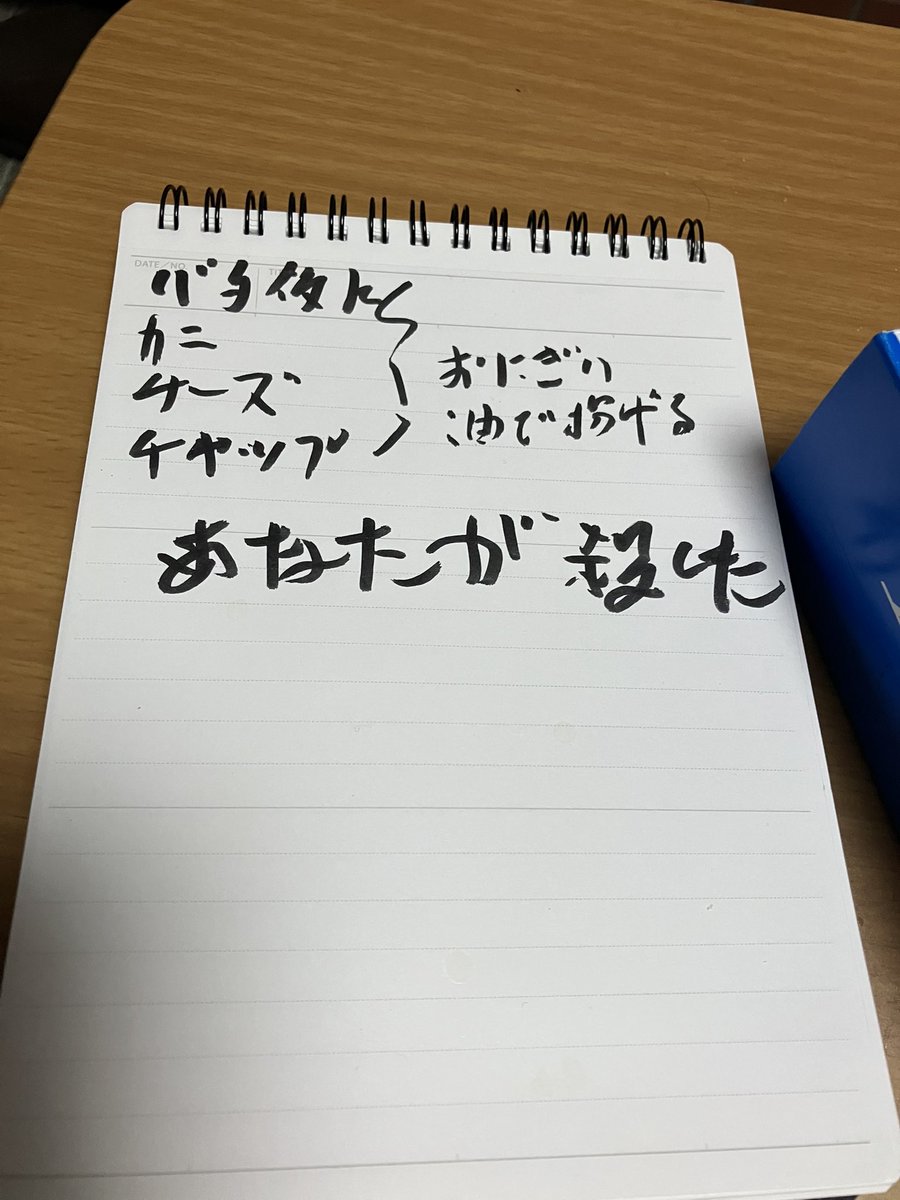 DATE／NO.
カニ
チーズ
チャップ
おにぎり
油で揚げる
あなたが殺した